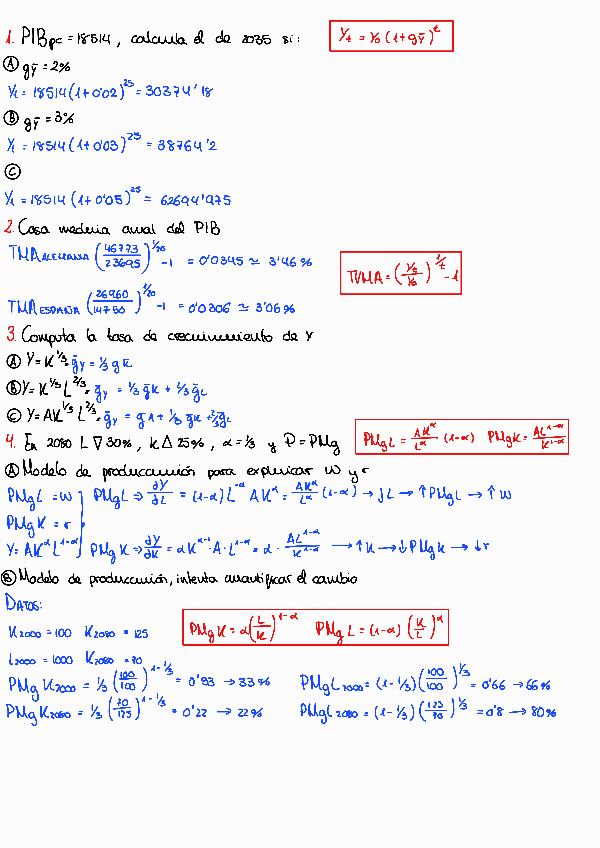 1. PIBpc = 18514, calcula el de 2035 si: Yt = Y0 (1+gȳ)^t
Ⓐ gȳ = 2%
Yt = 18514(1+0'02)^25 = 30374'18
Ⓑ gȳ = 3%
Yt = 18514(1+0'03)^25 = 38764'2
Ⓒ
Yt = 18514(1+0'05)^25 = 62694'975
2. Casa mediana anual del PIB
TMA ALEMANIA (46773/23695)^1/20 - 1 = 0'0345 ≃ 3'46%
TVMA = (Yt/Y0)^1/t - 1
TMA ESPAÑA (26960/14750)^1/20 - 1 = 0'0306 ≃ 3'06%
3. Computa la tasa de crecimiento de Y
Ⓐ Y = K^1/3 = ḡY = 1/3 gK̄
Ⓑ Y = K^1/3 L^2/3 = ḡY = 1/3 ḡK + 2/3 ḡL
Ⓒ Y = AK^1/3 L^2/3 = ḡY = gA + 1/3 ḡK + 2/3 ḡL
4. En 2080 L ∇ 30%, K Δ 25%, α = 1/3 y P = PMg
PMgL = AK^α/L^α (1-α) PMgK = AL^1-α/K^1-α
Ⓐ Modelo de producción para explicar W y r
PMgL = W PMgL ⇒ ∂Y/∂L = (1-α) L^-α AK^α = AK^α/L^α (1-α) → ↓L → ↑PMgL → ↑W
PMgK = r
Y = AK^α L^1-α PMgK ⇒ ∂Y/∂K = αK^α-1 · A · L^1-α = α · AL^1-α/K^1-α → ↑K → ↓PMgK → ↓r
Ⓑ Modelo de producción, intenta cuantificar el cambio
DATOS:
PMgK = α(L/K)^1-α PMgL = (1-α) (K/L)^α
K2000 = 100 K2080 = 125
L2000 = 1000 K2080 = 70
PMgK2000 = 1/3 (100/100)^1-1/3 = 0'33 → 33% PMgL2000 = (1-1/3)(100/100)^1/3 = 0'66 → 66%
PMgK2080 = 1/3 (70/125)^1-1/3 = 0'22 → 22% PMgL2080 = (1-1/3)(125/70)^1/3 = 0'8 → 80%